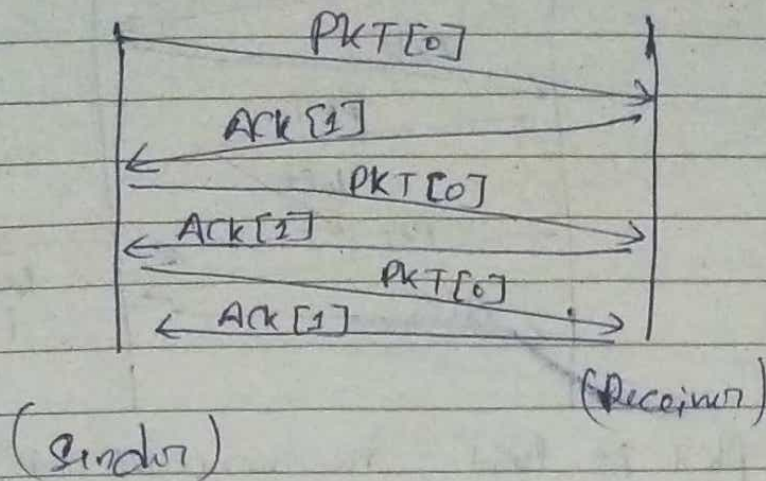 PKT[0]
ACK[1]
PKT[0]
ACK[1]
PKT[0]
ACK[1]
(Receiver)
(Sender)